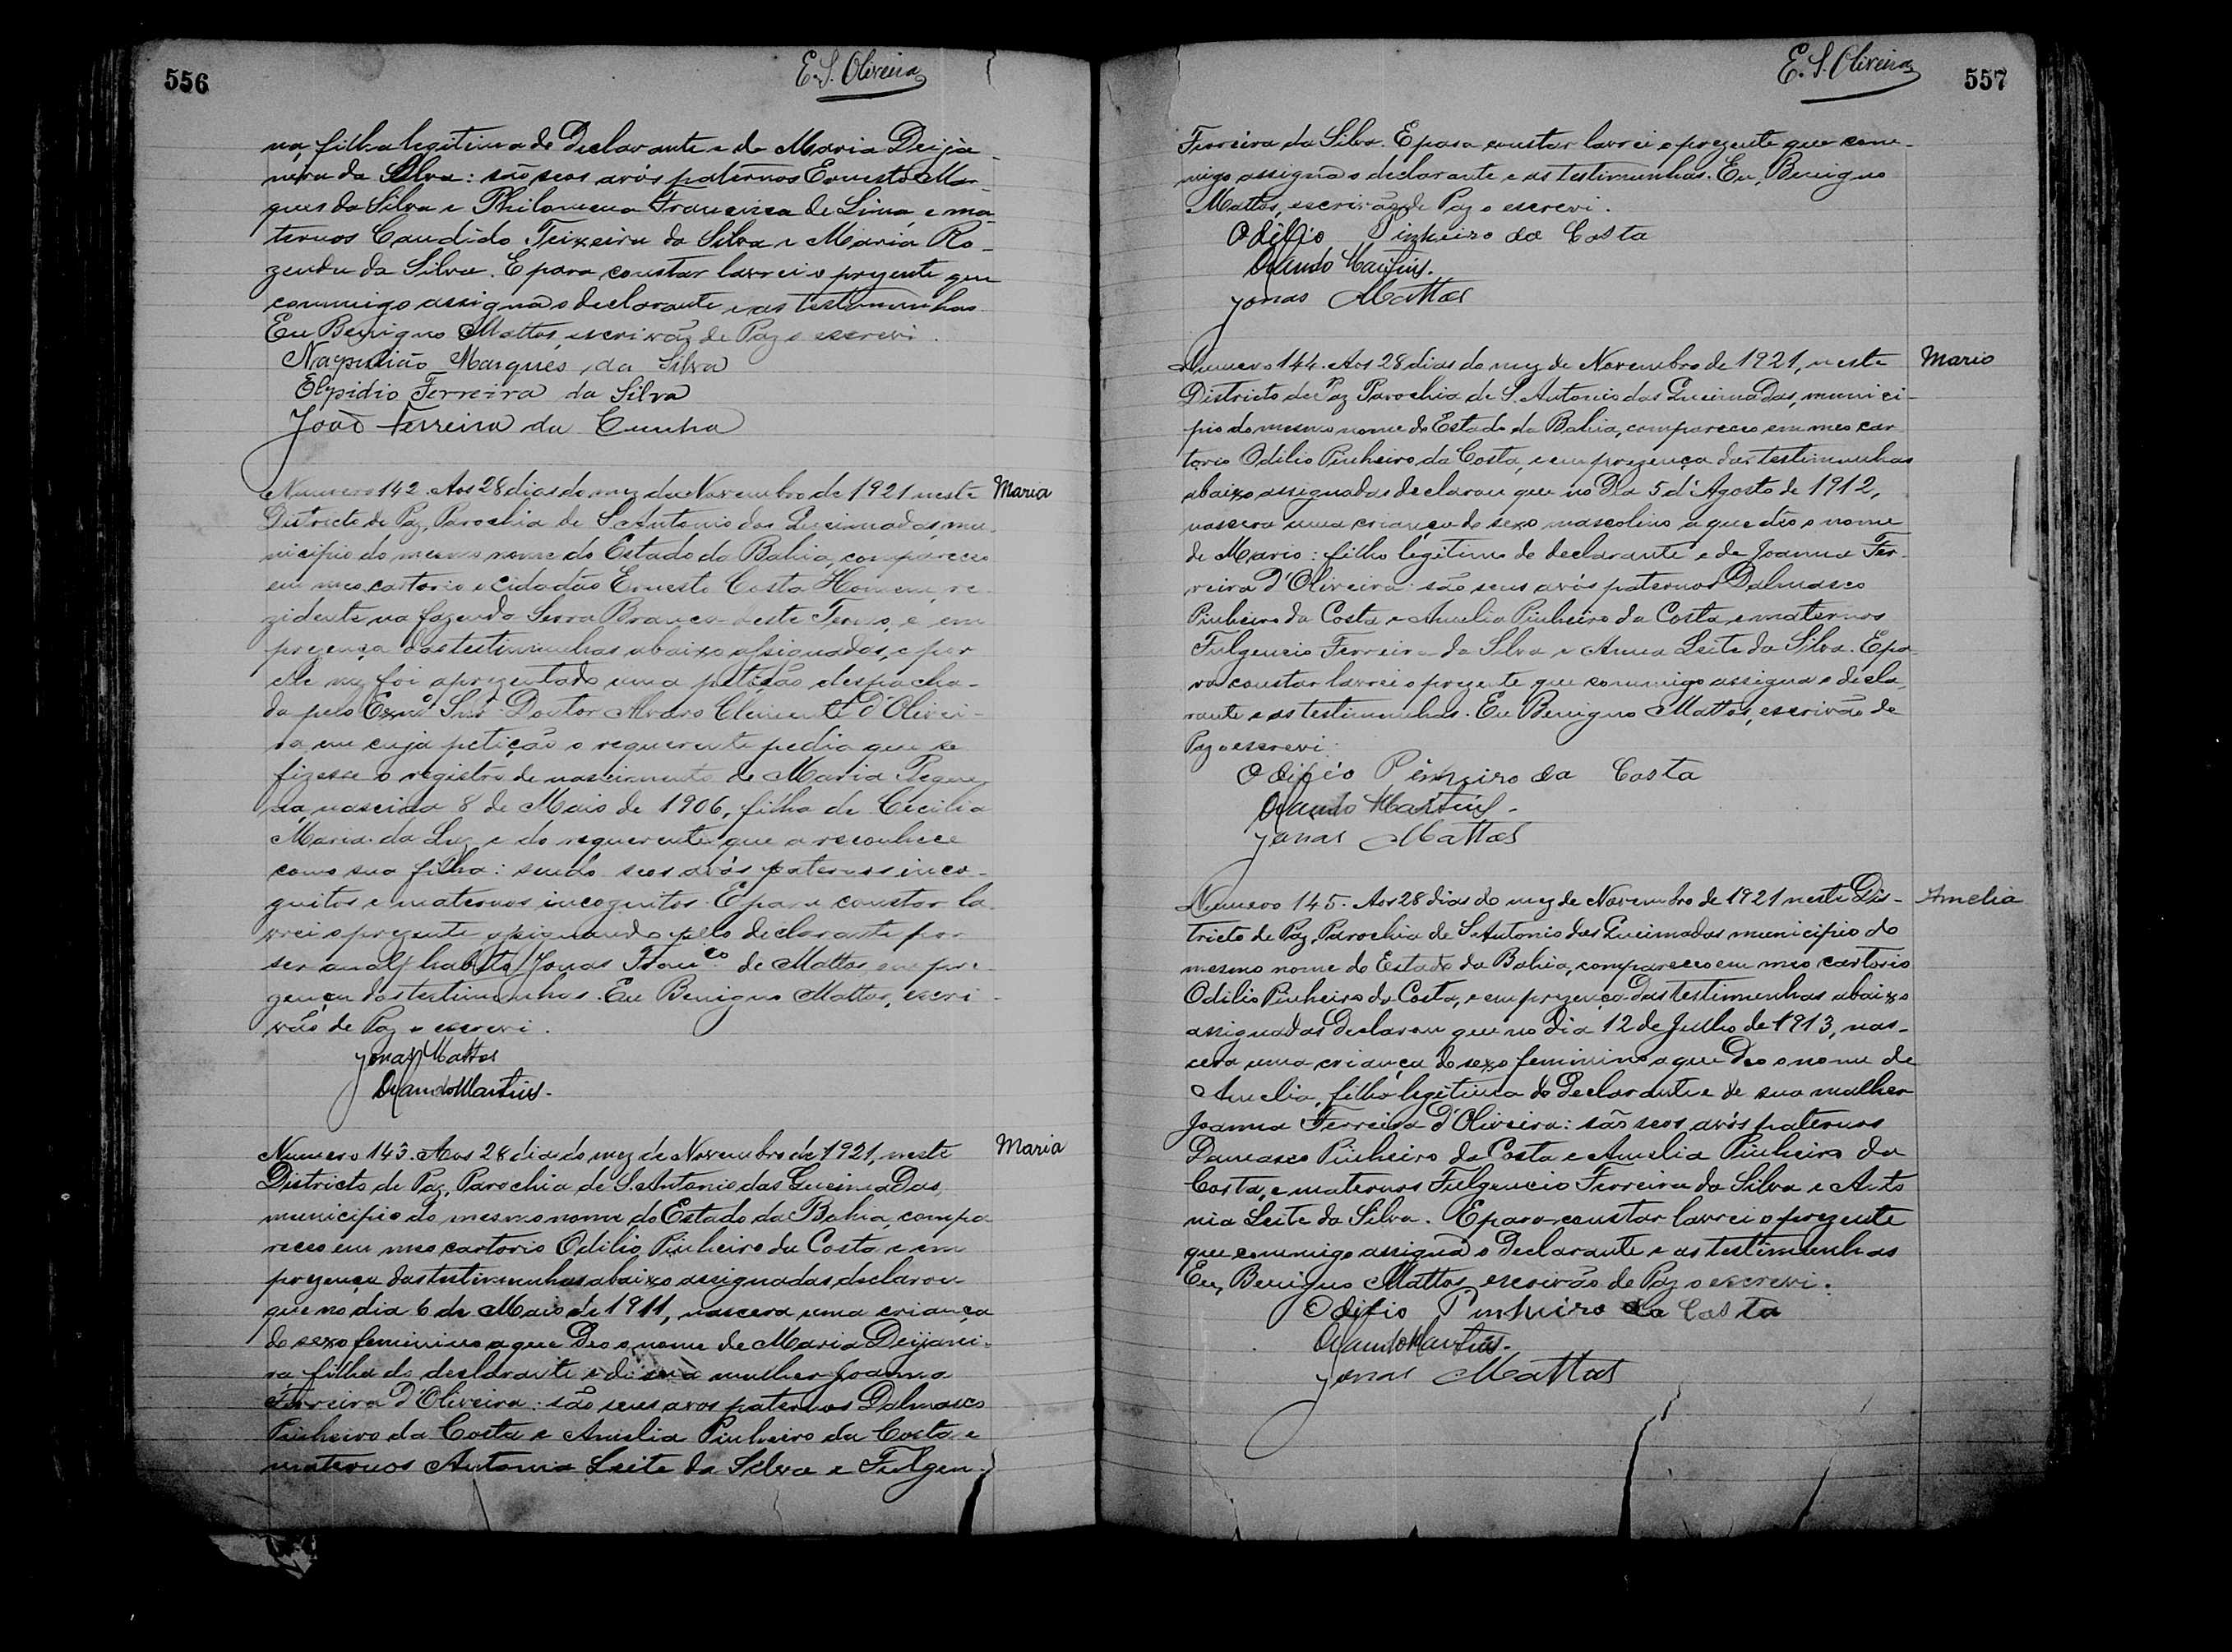 556
E. S. Oliveira
na, filha legitima do Declarante e de Maria Deija-
nira da Silva: são seos avós paternos Ernesto Mar-
ques da Silva e Philomena Francisca de Lima, e ma-
ternos Candido Teixeira da Silva e Maria Ro-
zenda da Silva. E para constar lavrei o prezente que
commigo assigna o declarante e as testimunhas.
Eu Benigno Mattos, escrivão de Paz o escrevi.
Marques da Silva
Elpidio Ferreira da Silva
João Ferreira da Cunha
Numero 142. Aos 28 dias do mez de Novembro de 1921 neste
Maria
Districto de Paz, Parochia de S. Antonio das Queimadas, mu-
nicipio do mesmo nome do Estado da Bahia, compareceo
em meo cartorio o cidadão Ernesto Costa Homem, re-
zidente na fazenda Serra Branca deste Termo, e em
prezença das testimunhas abaixo assignadas, e por
ele me foi aprezentado uma petição despacha-
da pelo Exmº Snr Doutor Alvaro Clemente d'Olivei-
ra em cuja petição o requerente pedia que se
fizesse o registro de nascimento de Maria Peque-
na, nascida 8 de Maio de 1906, filha de Cecilia
Maria da Luz e do requerente que a reconhece
como sua filha: sendo seos avós paternos inco-
gnitos e maternos incognitos. E para constar la-
vrei o prezente assignando pelo declarante por
ser analphabeto Jonas Franco de Mattos em pre-
zença das testimunhas. Eu Benigno Mattos, escri-
vão de Paz o escrevi.
Jonas Mattos
Orlando Martins.
Numero 143. Aos 28 dias do mez de Novembro de 1921, neste
Maria
Districto de Paz, Parochia de S. Antonio das Queimadas,
municipio do mesmo nome do Estado da Bahia, compa
receo em meo cartorio Odilio Pinheiro da Costa e em
prezença das testimunhas abaixo assignadas, declarou
que no dia 6 de Maio de 1911, nascera uma criança
do sexo feminino a que Deo o nome de Maria Deijani-
ra, filha do declarante e de sua mulher Joanna
Ferreira d'Oliveira: são seus avos paternos Dalmasco
Pinheiro da Costa e Amelia Pinheiro da Costa e
maternos Antonia Leite da Silva e Fulgen-
557
E. S. Oliveira
Ferreira da Silva. E para constar lavrei o prezente que com-
migo assigna o declarante e as testimunhas. Eu, Benigno
Mattos, escrivão de Paz o escrevi.
Odilio Pinheiro da Costa
Orlando Martins.
Jonas Mattos
Numero 144. Aos 28 dias do mez de Novembro de 1921, neste
Mario
Districto de Paz Parochia de S. Antonio das Queimadas, munici-
pio do mesmo nome do Estado da Bahia, compareceo em meo car
torio Odilio Pinheiro da Costa, e em prezença das testimunhas
abaixo assignadas declarou que no Dia 5 d'Agosto de 1912,
nascera uma criança do sexo mascolino a que deo o nome
de Mario: filho legitimo do declarante e de Joanna Fer-
reira d'Oliveira: são seus avós paternos Dalmasco
Pinheiro da Costa e Amelia Pinheiro da Costa e maternos
Fulgencio Ferreira da Silva e Anna Leite da Silva. E pa-
ra constar lavrei o prezente que commigo assigna o decla-
rante e as testimunhas. Eu Benigno Mattos, escrivão de
Paz o escrevi.
Odilio Pinheiro da Costa
Orlando Martins.
Jonas Mattos
Numero 145. Aos 28 dias do mez de Novembro de 1921 neste Dis-
Amelia
tricto de Paz, Parochia de S. Antonio das Queimadas municipio do
mesmo nome do Estado da Bahia, compareceo em meo cartorio
Odilio Pinheiro da Costa, e em prezença das testimunhas abaixo
assignadas Declarou que no Dia 12 de Julho de 1913, nas-
cera uma criança do sexo feminino a que Deo o nome de
Amelia, filha legitima do Declarante e de sua mulher
Joanna Ferreira d'Oliveira: são seos avós paternos
Damasco Pinheiro da Costa e Amelia Pinheiro da
Costa, e maternos Fulgencio Ferreira da Silva e Anto
nia Leite da Silva. E para constar lavrei o prezente
que commigo assigna o Declarante e as testimunhas
Eu, Benigno Mattos, escrivão de Paz o escrevi.
Odilio Pinheiro da Costa
Orlando Martins.
Jonas Mattos